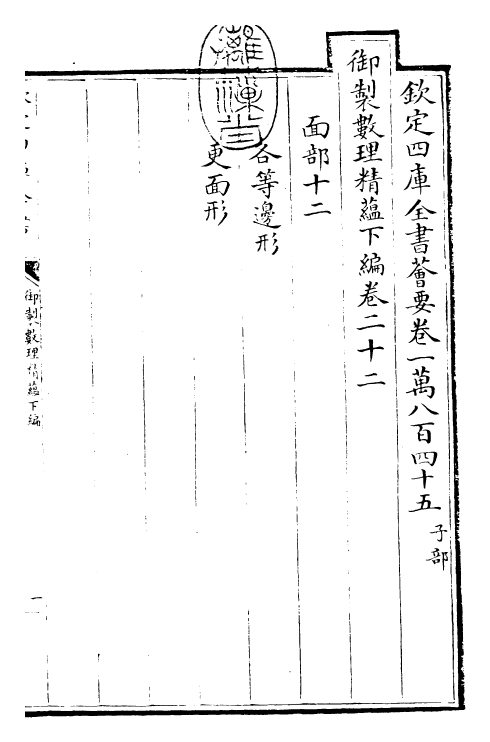 欽定四庫全書薈要卷一萬八百四十五 子部
御製數理精蘊下編卷二十二
面部十二
各等邊形
更面形
御製數理精蘊下編